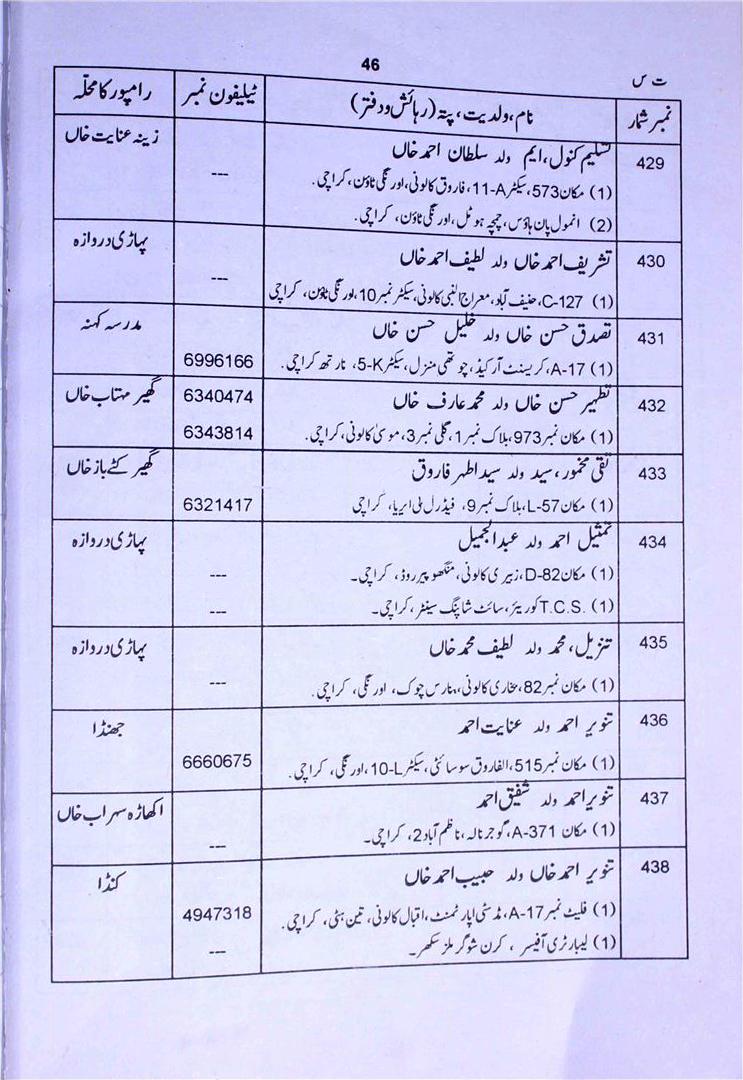 46
ت س
نمبر شمار	نام، ولدیت، پتہ (رہائش و دفتر)	ٹیلیفون نمبر	رامپور کا محلّہ
429	تسلیم کنول، ایم ولد سلطان احمد خاں	زینہ عنایت خاں
(1) مکان 573، سیکٹر A-11، فاروق کالونی، اورنگی ٹاؤن، کراچی.	---
(2) انمول پان ہاؤس، چمچہ ہوٹل، اورنگی ٹاؤن، کراچی.
430	تشریف احمد خاں ولد لطیف احمد خاں	---	پہاڑی دروازہ
(1) C-127، حنیف آباد، معراج النبی کالونی، سیکٹر نمبر 10، اورنگی ٹاؤن، کراچی
431	تصدق حسن خاں ولد خلیل حسن خاں	مدرسہ کہنہ
(1) A-17، کریسنٹ آرکیڈ، چوتھی منزل، سیکٹر 5-K، نارتھ کراچی.	6996166
432	تطہیر حسن خاں ولد محمد عارف خاں	6340474	گھیر مہتاب خاں
(1) مکان نمبر 973، بلاک نمبر 1، گلی نمبر 3، موسیٰ کالونی، کراچی.	6343814
433	تقی مخمور، سید ولد سید اطہر فاروق	گھیر کٹے باز خاں
(1) مکان L-57، بلاک نمبر 9، فیڈرل بی ایریا، کراچی	6321417
434	تمثیل احمد ولد عبدالجمیل	پہاڑی دروازہ
(1) مکان D-82، زبیری کالونی، منگھوپیر روڈ، کراچی۔	---
(1) T.C.S. کوریئر، سائٹ شاپنگ سینٹر، کراچی۔	---
435	تنزیل، محمد ولد لطیف محمد خاں	پہاڑی دروازہ
(1) مکان نمبر 82، بخاری کالونی، بنارس چوک، اورنگی، کراچی.	---
436	تنویر احمد ولد عنایت احمد	جھنڈا
(1) مکان نمبر 515، الفاروق سوسائٹی، سیکٹر 10-L، اورنگی، کراچی.	6660675
437	تنویر احمد ولد شفیق احمد	اکھاڑہ سہراب خاں
(1) مکان A-371، گوجر نالہ، ناظم آباد 2، کراچی۔	---
438	تنویر احمد خاں ولد حبیب احمد خاں	کنڈا
(1) فلیٹ نمبر A-17، اپارٹمنٹ، اقبال کالونی، تین ہٹی، کراچی.	4947318
(1) لیبارٹری آفیسر، کرن شوگر ملز سکھر۔	---